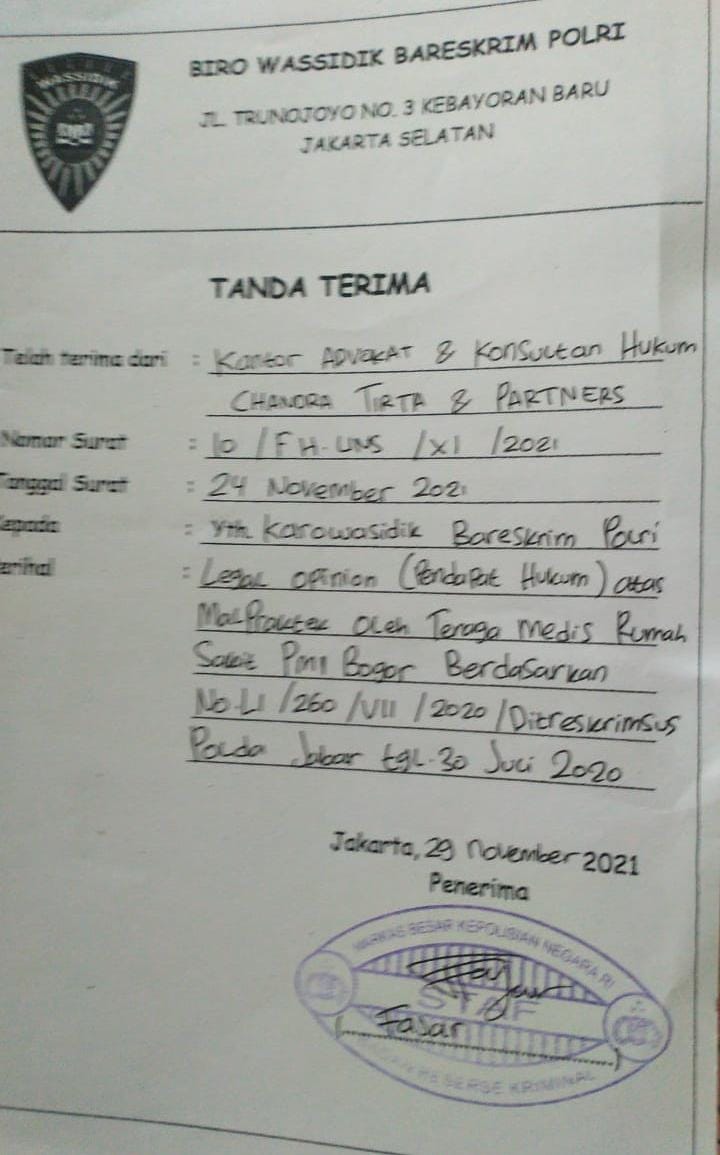 WASSIDIK
BIRO WASSIDIK BARESKRIM POLRI
JL. TRUNOJOYO NO. 3 KEBAYORAN BARU
JAKARTA SELATAN
TANDA TERIMA
Telah terima dari : Kantor ADVOKAT & Konsultan Hukum
CHANDRA TIRTA & PARTNERS
Nomor Surat : 10 / FH-UNS / XI / 2021
Tanggal Surat : 24 November 2021
epada : Yth. Karowasidik Bareskrim Polri
erihal : Legal opinion (Pendapat Hukum) atas
MalPraktek oleh Tenaga Medis Rumah
Sakit PMI Bogor Berdasarkan
No. LI / 260 / VII / 2020 / Ditreskrimsus
Polda Jabar tgl. 30 Juli 2020
Jakarta, 29 November 2021
Penerima
MARKAS BESAR KEPOLISIAN NEGARA RI
STAF
( Fajar )
RESERSE KRIMINAL